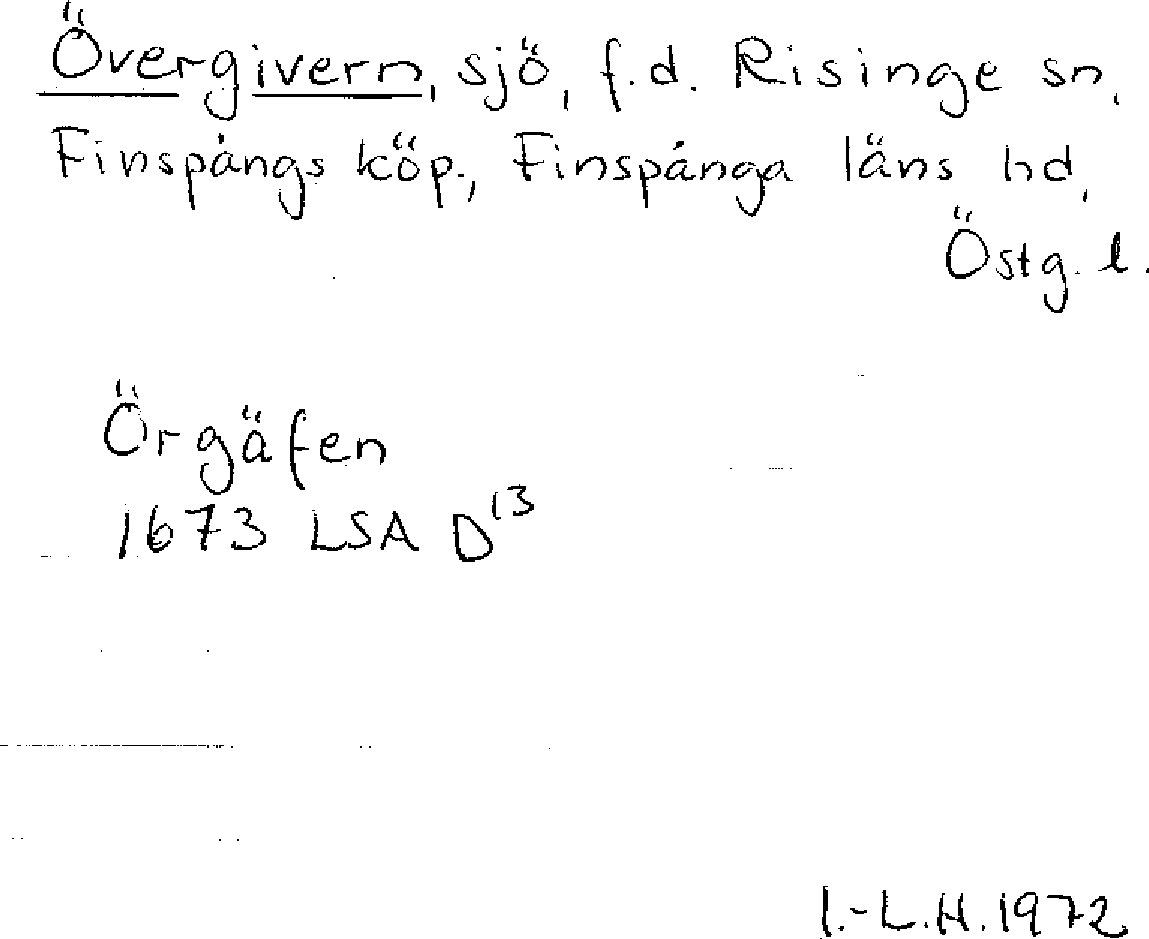 Övergivern, sjö, f.d. Risinge sn,
Finspångs köp., Finspånga läns hd,
Östg. l.
Örgäfen
1673 LSA D¹³
I.-L.H. 1972